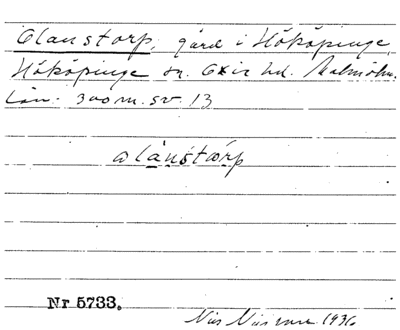 Olanstorp, gård i Hököpinge,
Hököpinge sn. Oxie hd. Malmöhu.
Län. 300 m. sv. 13
olánstårp
Nr 5733.
Nils Nilsson 1936